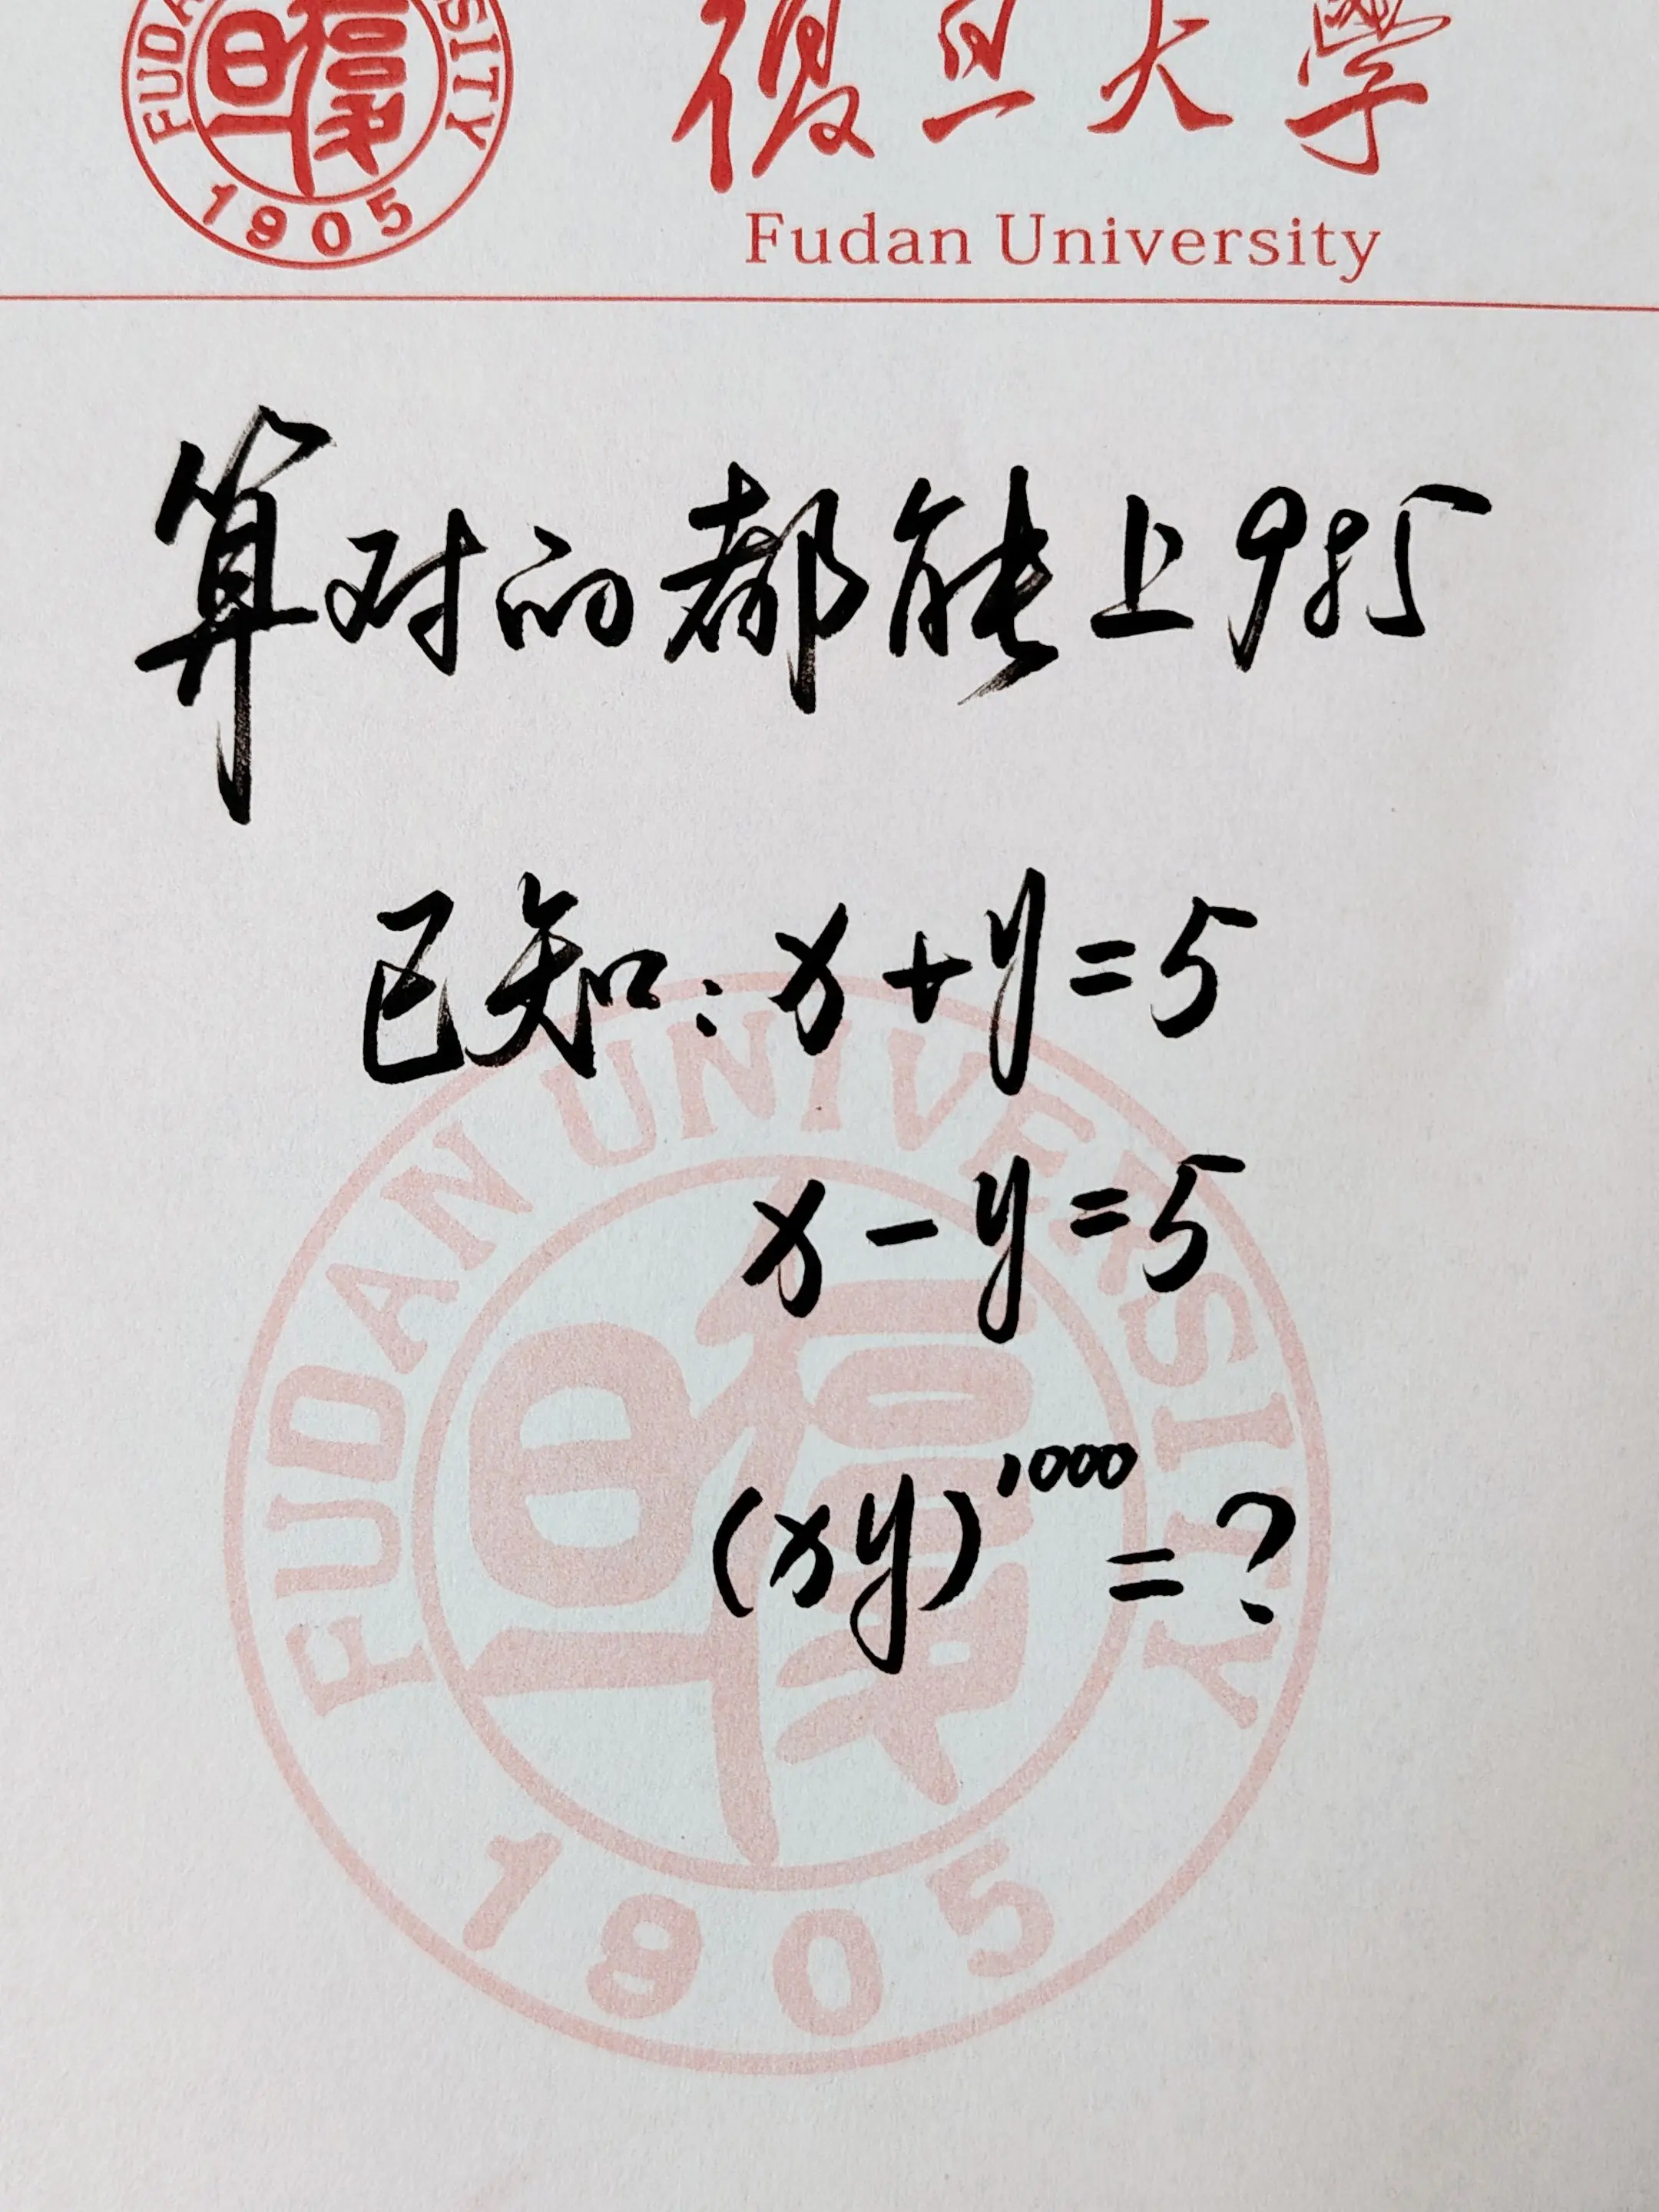 復旦大學
Fudan University
1905
算对的都能上985
已知: x+y=5
x-y=5
(xy)^1000 =?
FUDAN UNIVERSITY
復旦
1905